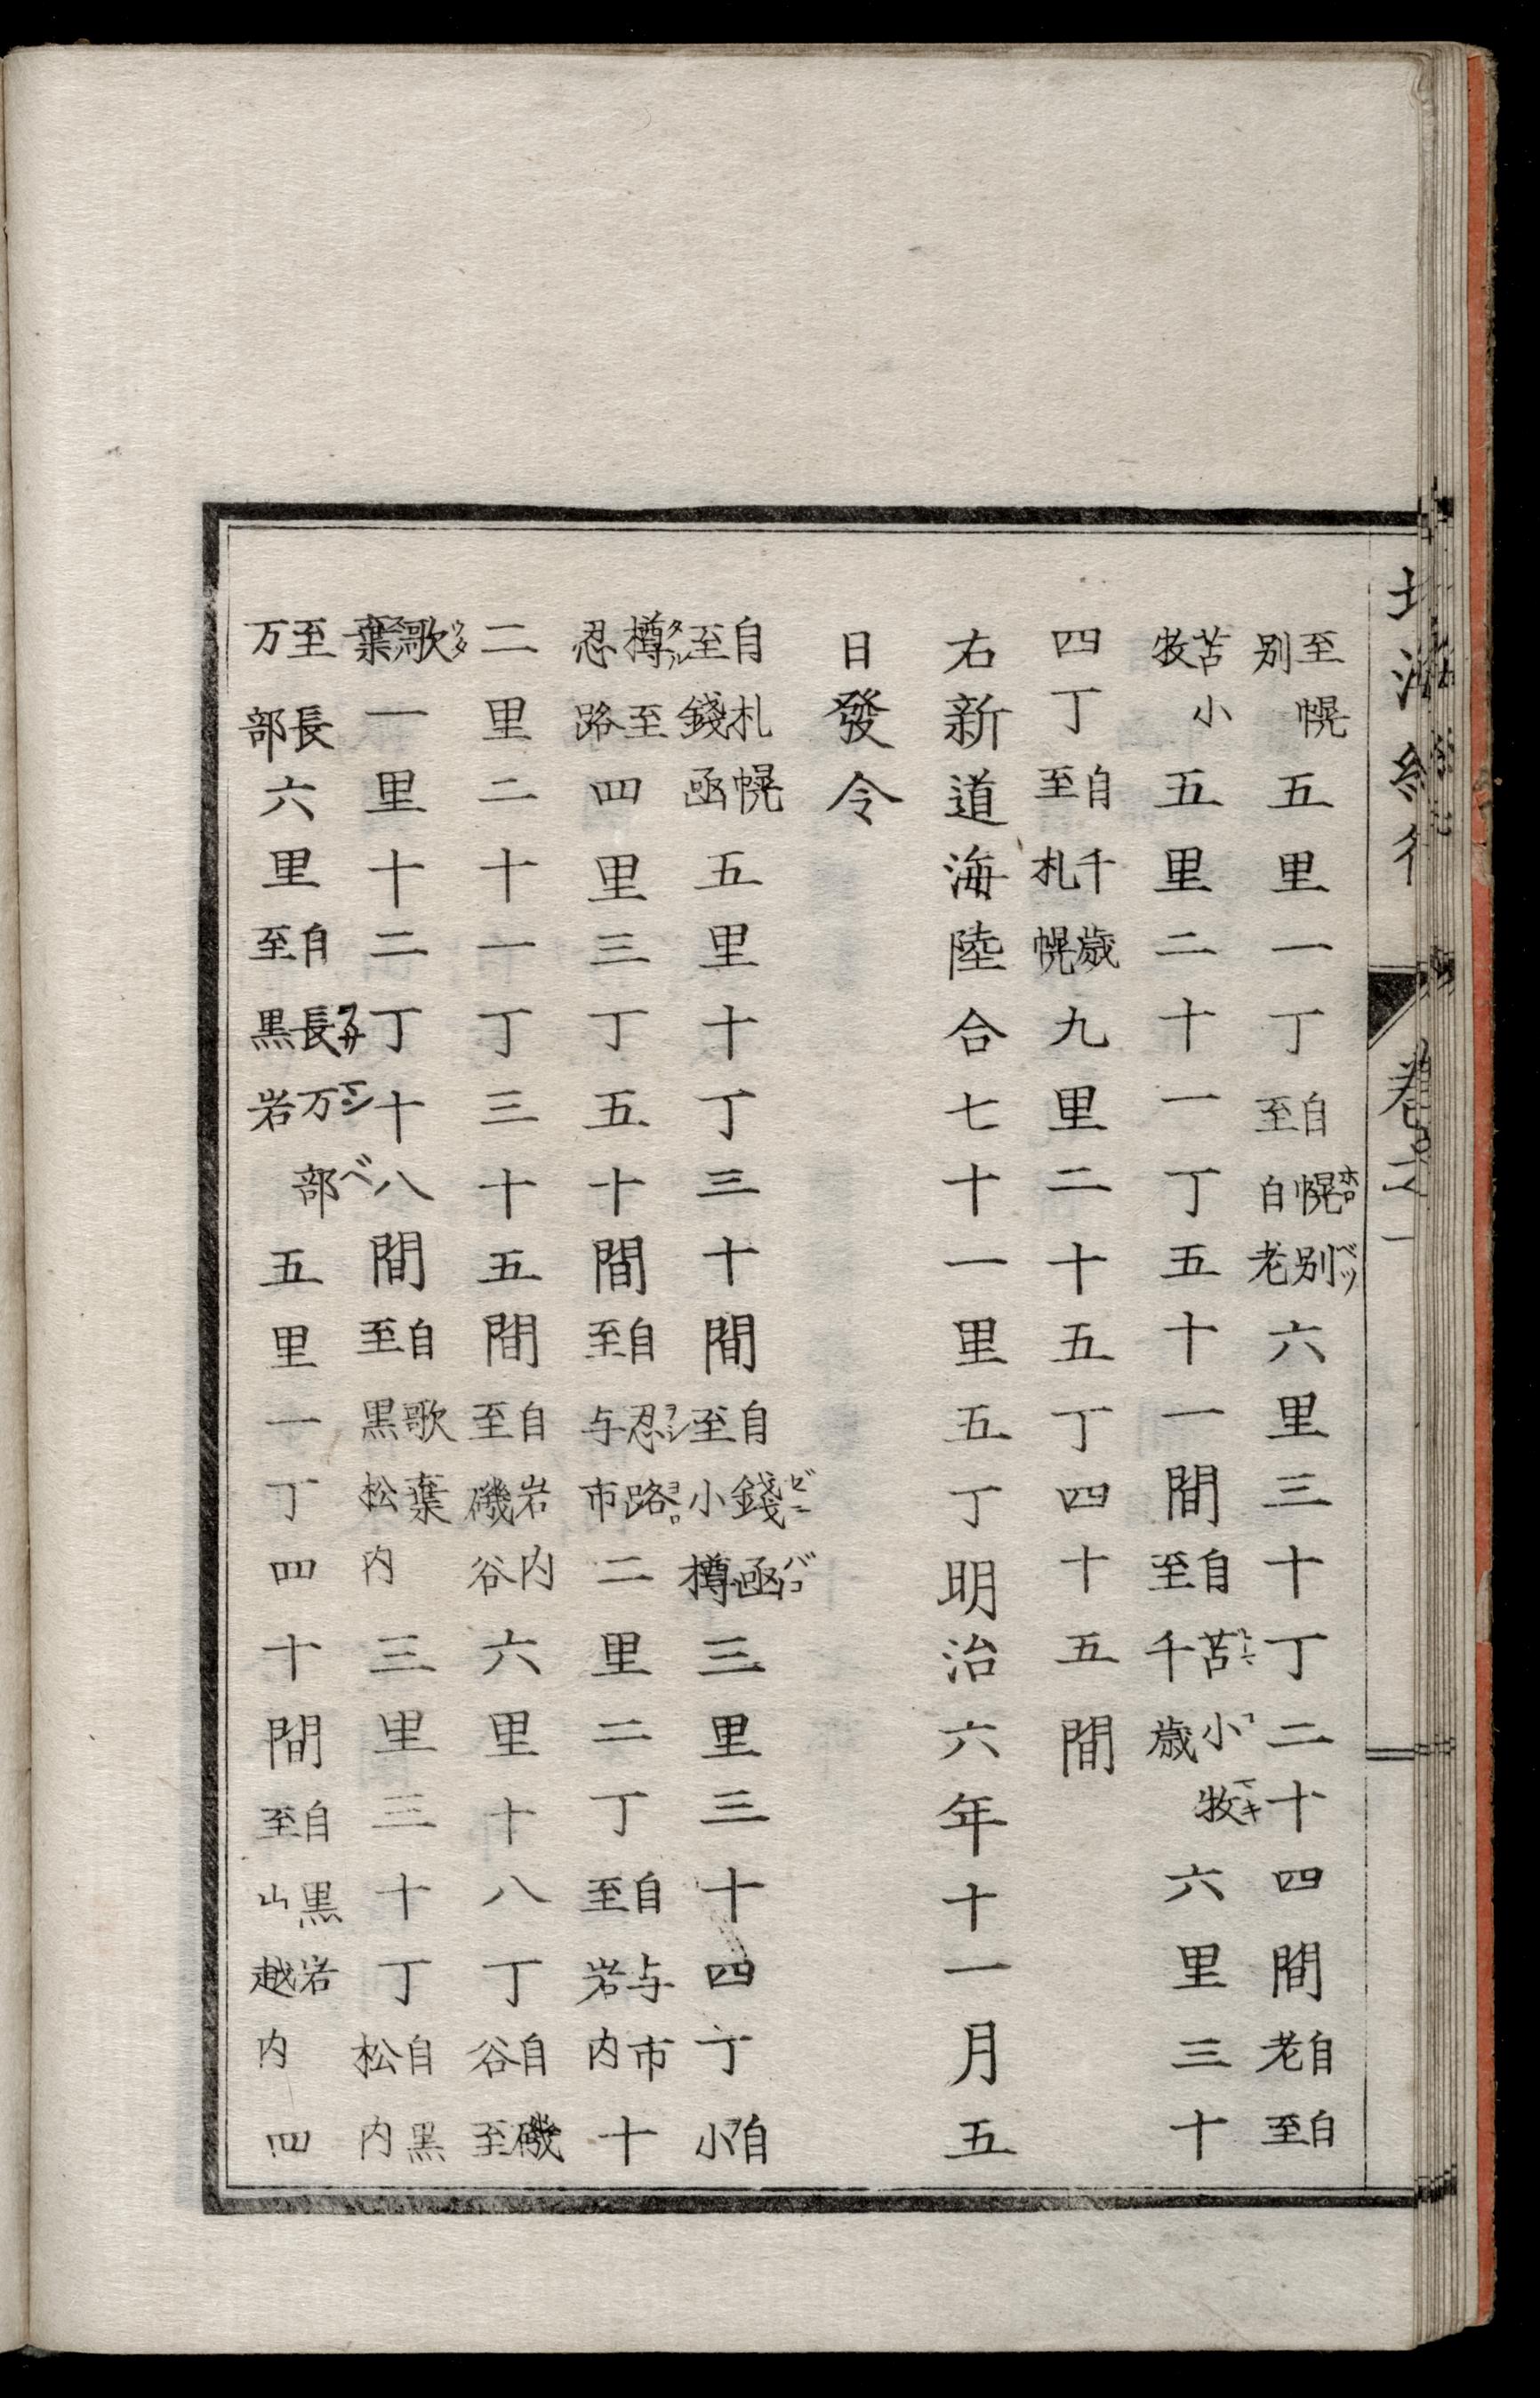 北海紀行　卷之一
至幌別五里一丁自幌別至白老六里三十丁二十四間自白老至
苫小牧五里二十一丁五十一間自苫小牧至千歳六里三十
四丁自千歳至札幌九里二十五丁四十五間
右新道海陸合七十一里五丁明治六年十一月五
日發令
自札幌至錢函五里十丁三十間自錢函至小樽三里三十四丁自小
樽至忍路四里三丁五十間自忍路至与市二里二丁自与市至岩内十
二里二十一丁三十五間自岩内至磯谷六里十八丁自磯谷至
歌棄一里十二丁十八間自歌棄至黒松内三里三十丁自黒松内
至長万部六里自長万部至黒岩五里一丁四十間自黒岩至山越内四